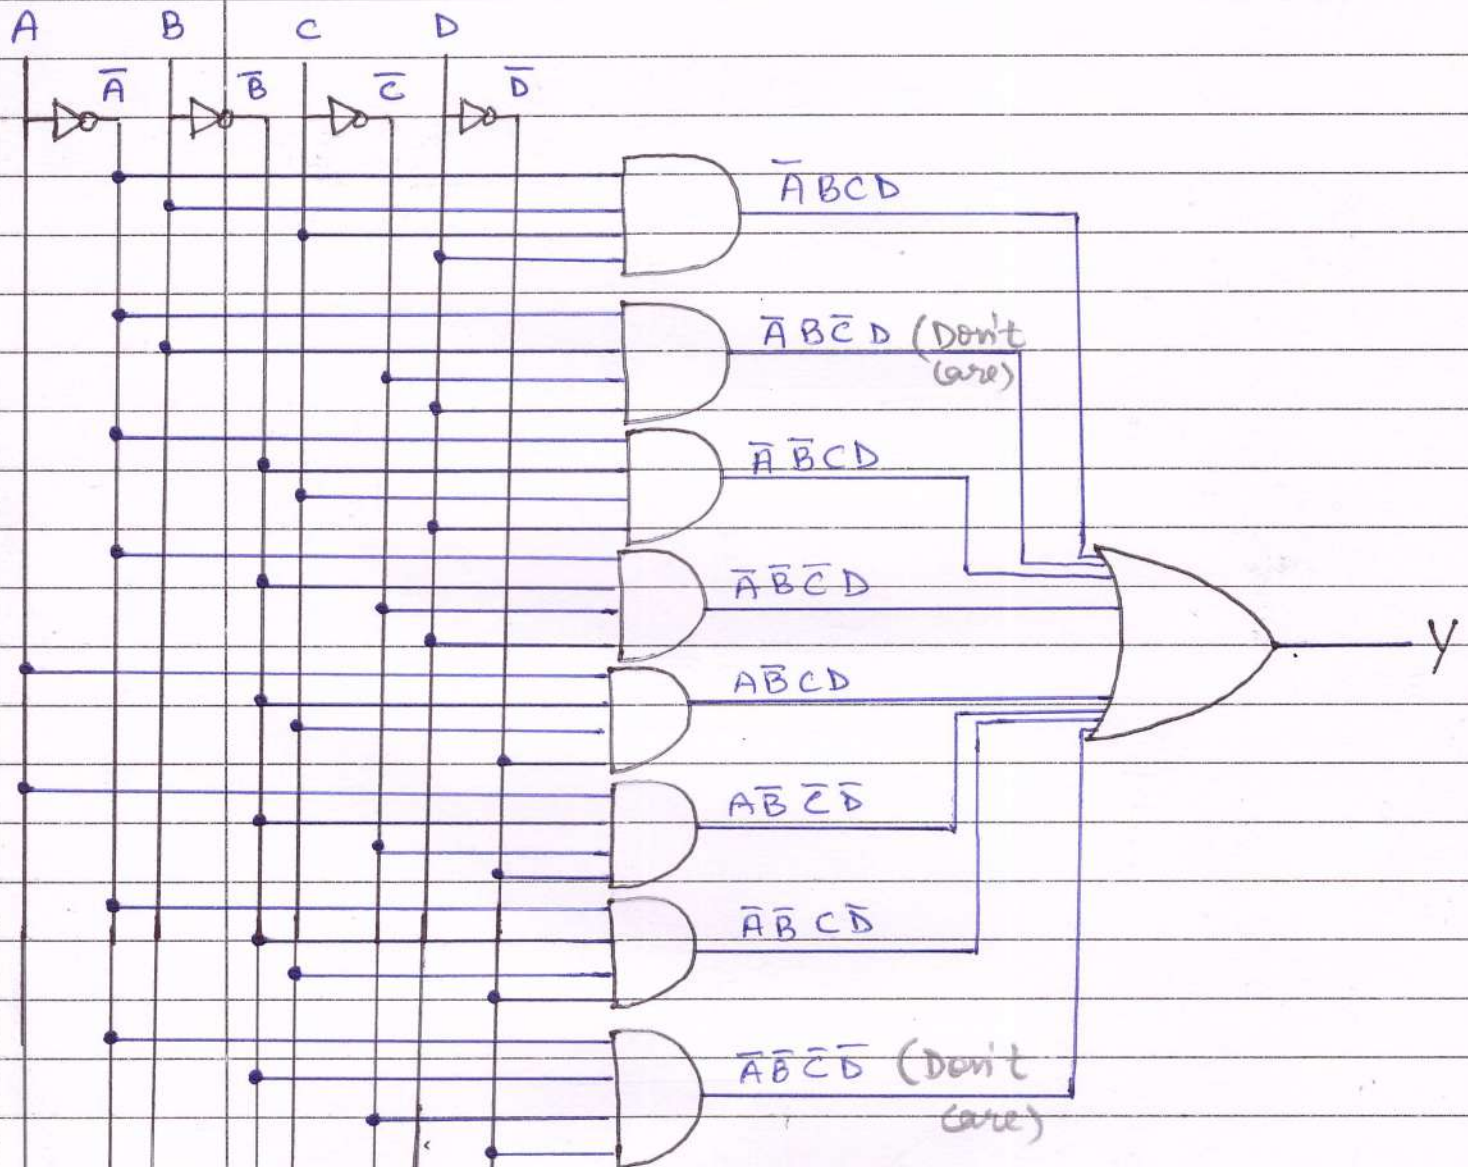 A B C D
A̅ B̅ C̅ D̅
A̅BCD
A̅BC̅D (Don't
care)
A̅B̅CD
A̅B̅C̅D
Y
AB̅CD
AB̅C̅D̅
A̅B̅CD̅
A̅B̅C̅D̅ (Don't
care)